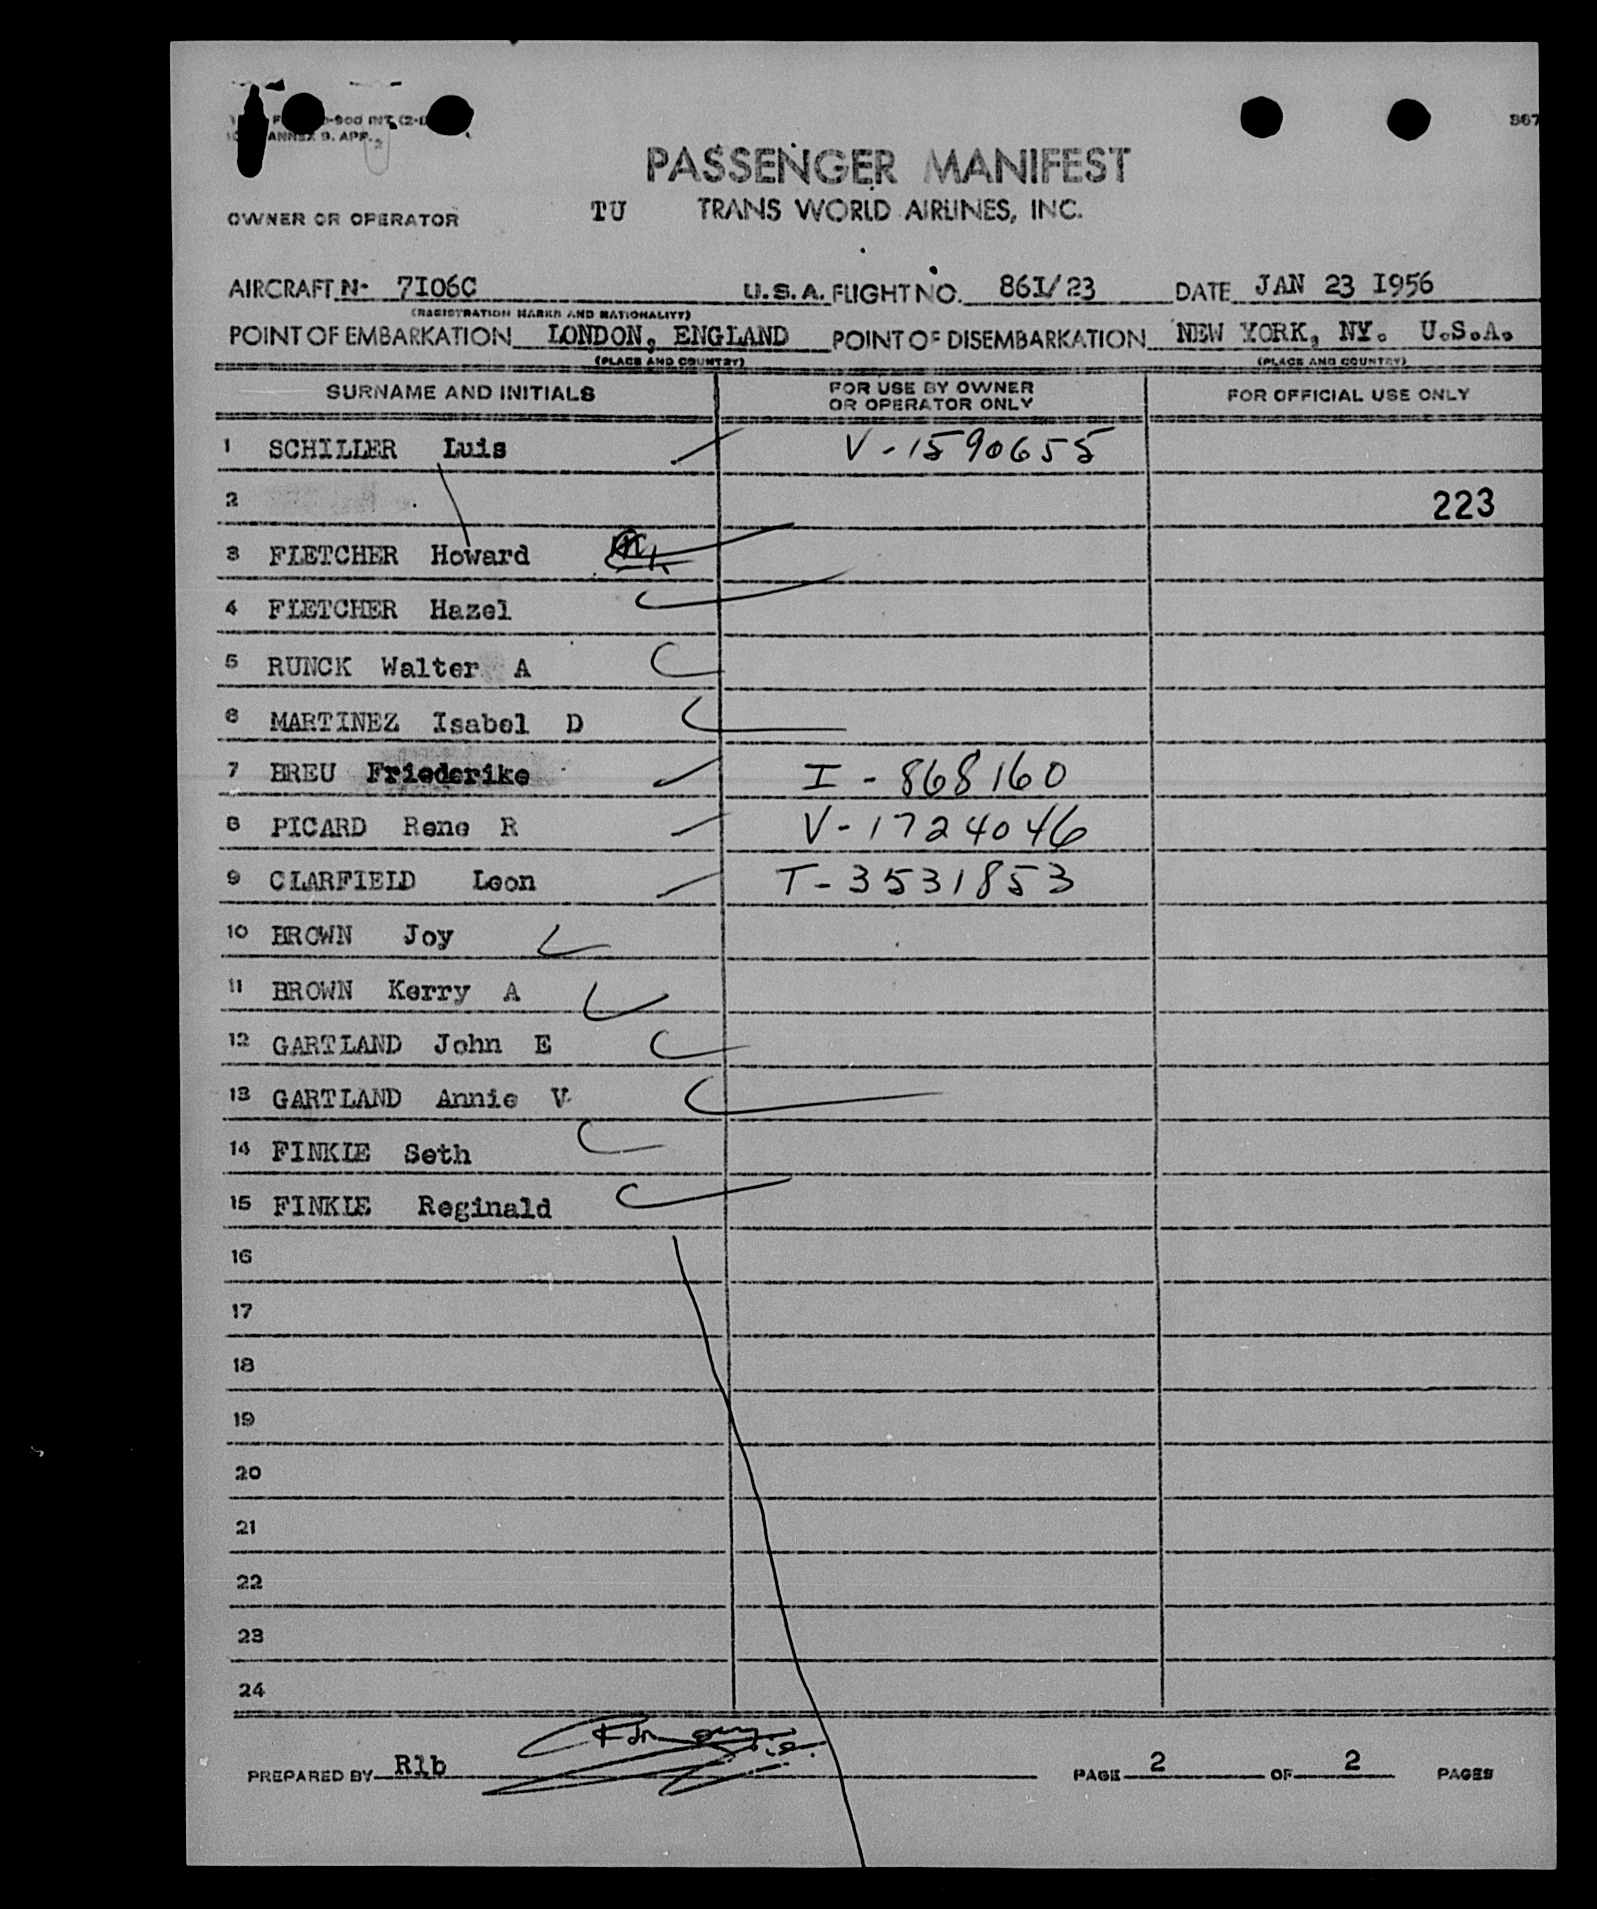 ANNEX 9. APP. 2
867
PASSENGER MANIFEST
OWNER OR OPERATOR TU TRANS WORLD AIRLINES, INC.
AIRCRAFT N- 7I06C U.S.A. FLIGHT NO. 86I/23 DATE JAN 23 I956
(REGISTRATION MARKS AND NATIONALITY)
POINT OF EMBARKATION LONDON, ENGLAND POINT OF DISEMBARKATION NEW YORK, NY. U.S.A.
(PLACE AND COUNTRY) (PLACE AND COUNTRY)
SURNAME AND INITIALS FOR USE BY OWNER OR OPERATOR ONLY FOR OFFICIAL USE ONLY
1 SCHILLER Luis V-1590655
2 223
3 FLETCHER Howard
4 FLETCHER Hazel
5 RUNCK Walter A
6 MARTINEZ Isabel D
7 BREU Friederike I-868160
8 PICARD Rene R V-1724046
9 CLARFIELD Leon T-3531853
10 BROWN Joy
11 BROWN Kerry A
12 GARTLAND John E
13 GARTLAND Annie V
14 FINKLE Seth
15 FINKLE Reginald
16
17
18
19
20
21
22
23
24
PREPARED BY Rlb PAGE 2 OF 2 PAGES